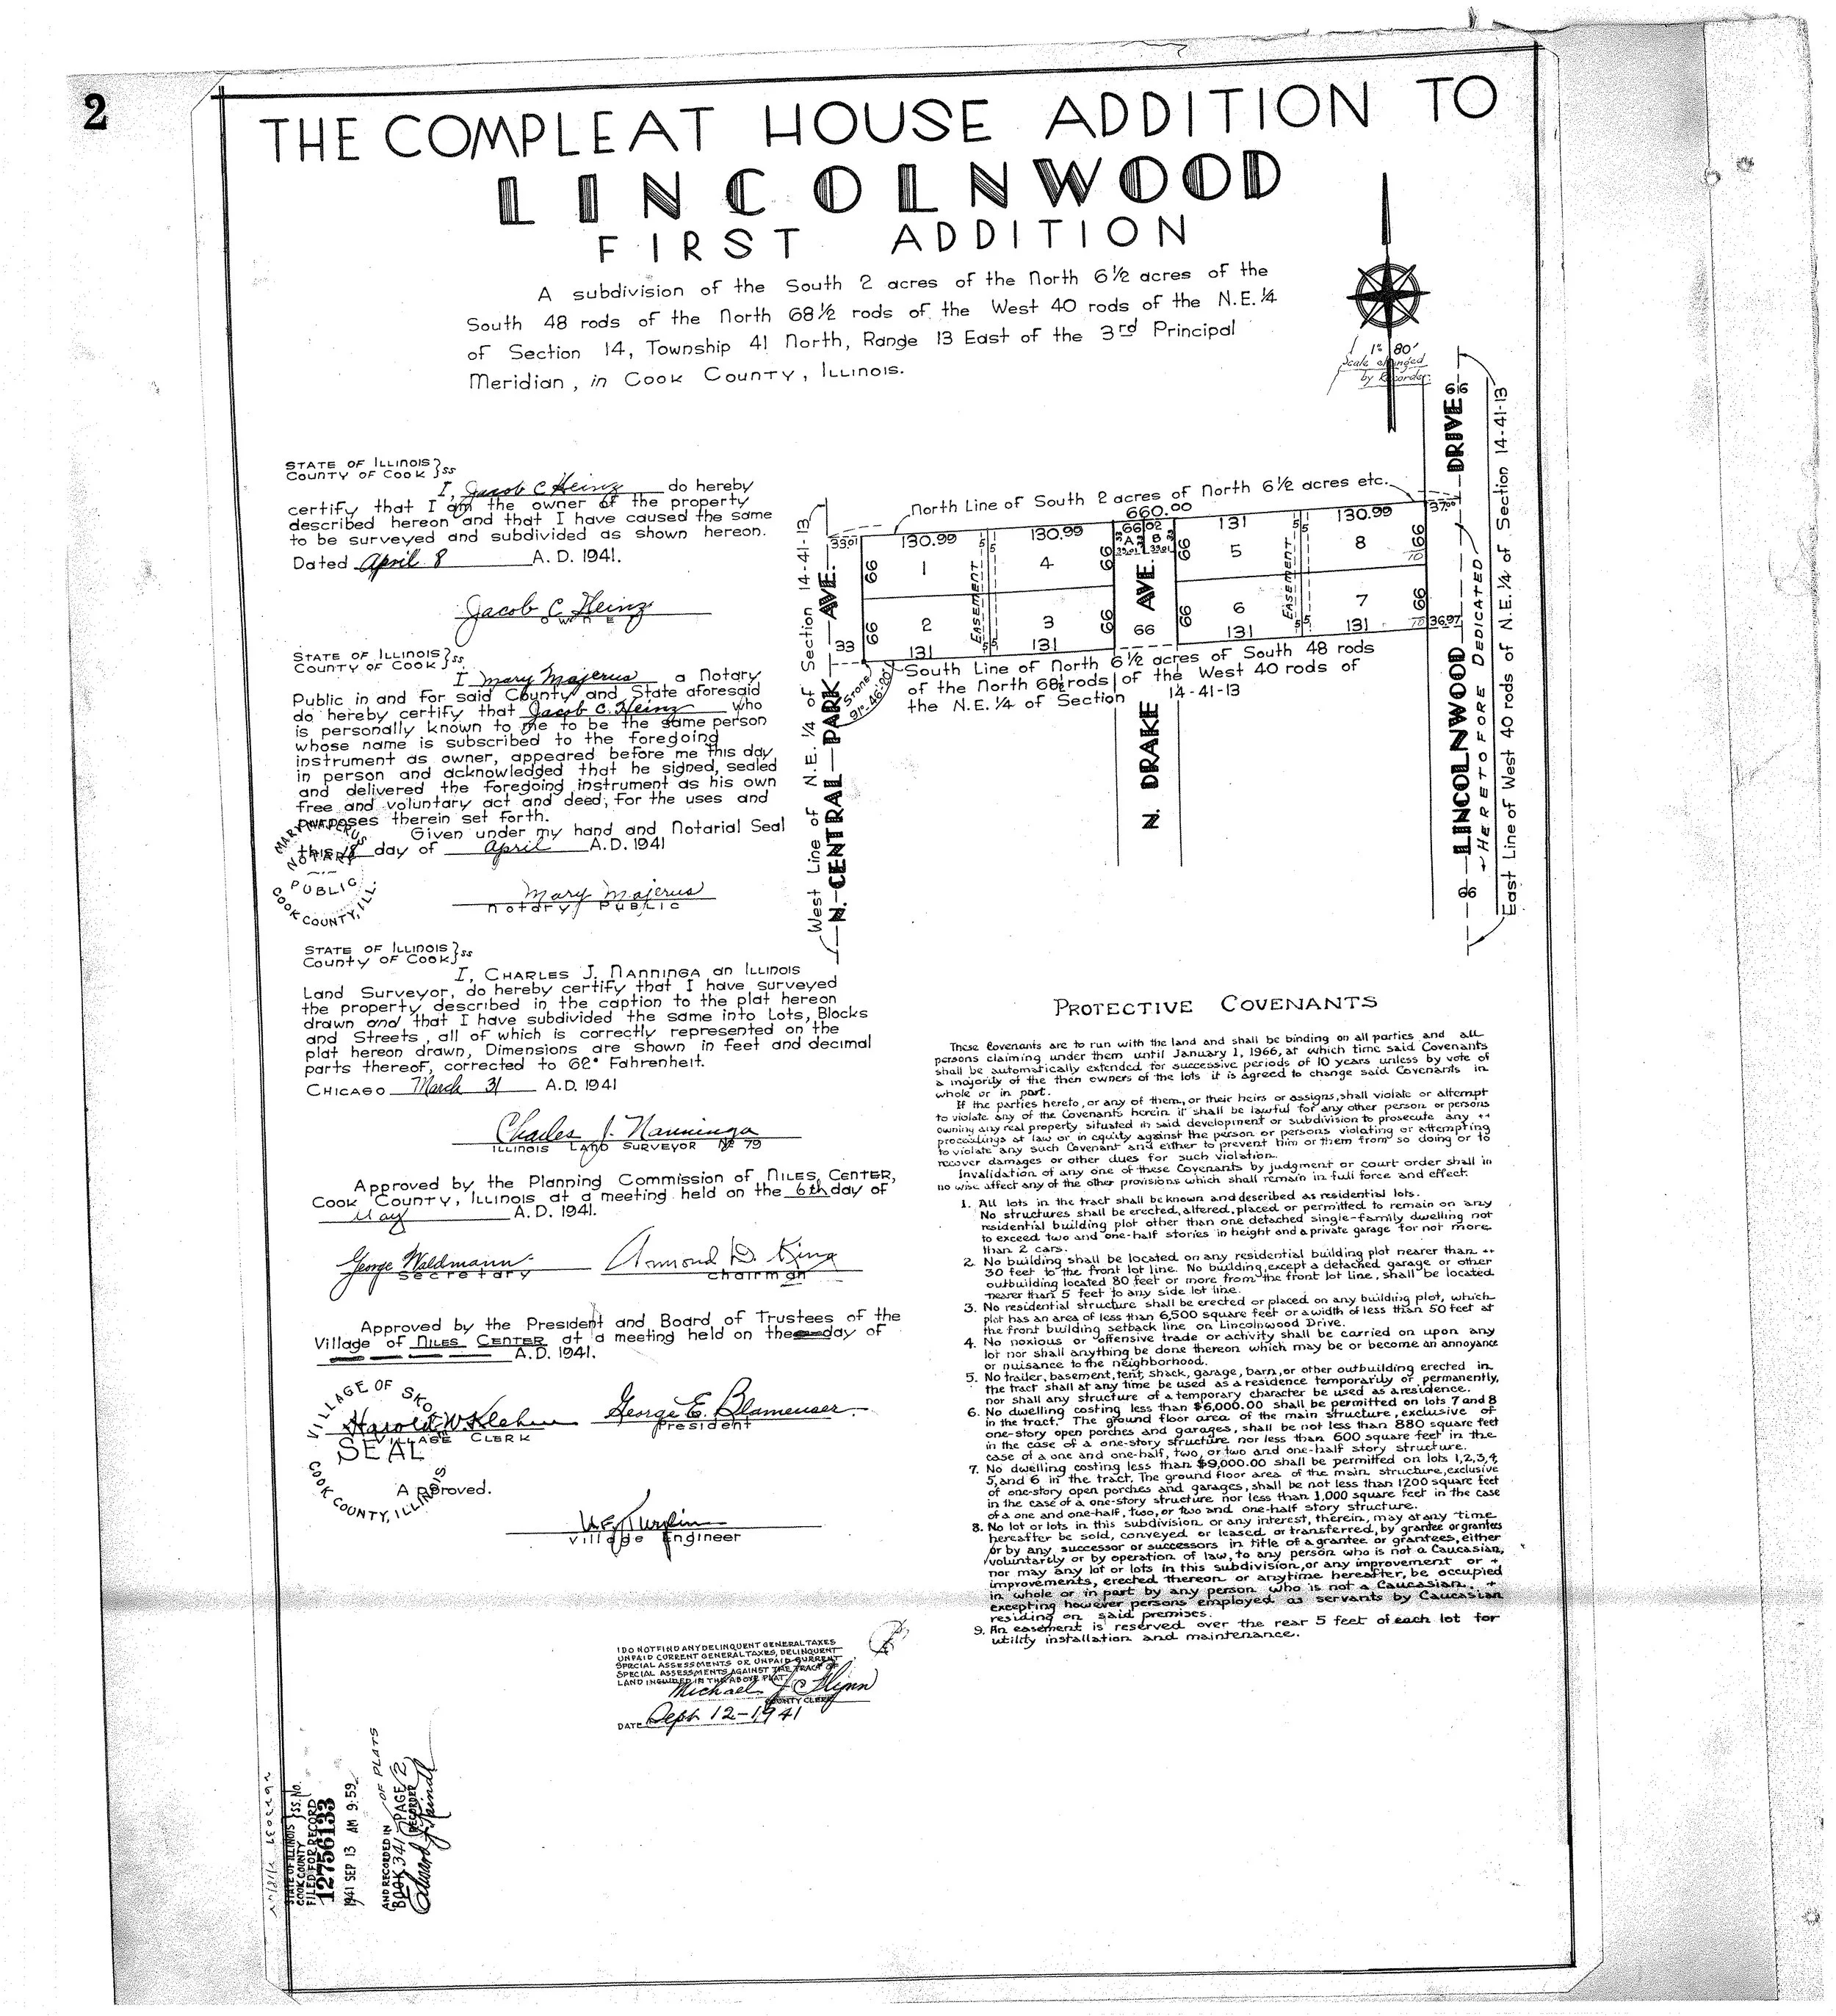 2
THE COMPLEAT HOUSE ADDITION TO
LINCOLNWOOD
FIRST ADDITION
A subdivision of the South 2 acres of the North 6½ acres of the
South 48 rods of the North 68½ rods of the West 40 rods of the N.E.¼
of Section 14, Township 41 North, Range 13 East of the 3rd Principal
Meridian, in Cook County, Illinois.
1"= 80'
Scale changed
by Recorder
STATE OF ILLINOIS } ss
COUNTY OF COOK
I, Jacob C Heinz do hereby
certify that I am the owner of the property
described hereon and that I have caused the same
to be surveyed and subdivided as shown hereon.
Dated April 8 A.D. 1941.
Jacob C Heinz
OWNER
STATE OF ILLINOIS } ss
COUNTY OF COOK
I Mary Majerus a Notary
Public in and for said County and State aforesaid
do hereby certify that Jacob C. Heinz who
is personally known to me to be the same person
whose name is subscribed to the foregoing
instrument as owner, appeared before me this day
in person and acknowledged that he signed, sealed
and delivered the foregoing instrument as his own
free and voluntary act and deed, for the uses and
purposes therein set forth.
Given under my hand and Notarial Seal
this day of April A.D. 1941
MARY MAJERUS
NOTARY
PUBLIC
COOK COUNTY, ILL.
Mary Majerus
Notary Public
STATE OF ILLINOIS } ss
County of Cook
I, CHARLES J. NANNINGA an ILLINOIS
Land Surveyor, do hereby certify that I have surveyed
the property described in the caption to the plat hereon
drawn and that I have subdivided the same into Lots, Blocks
and Streets, all of which is correctly represented on the
plat hereon drawn, Dimensions are shown in feet and decimal
parts thereof, corrected to 62° Fahrenheit.
CHICAGO March 31 A.D. 1941
Charles J. Nanninga
ILLINOIS LAND SURVEYOR № 79
Approved by the Planning Commission of NILES CENTER,
COOK COUNTY, ILLINOIS at a meeting held on the 6th day of
May A.D. 1941.
George Waldmann
Secretary
Armond D. King
Chairman
Approved by the President and Board of Trustees of the
Village of NILES CENTER at a meeting held on the day of
A.D. 1941.
VILLAGE OF SKOKIE
SEAL
COOK COUNTY, ILLINOIS
Harold W. Klehm
VILLAGE CLERK
George E. Blameuser
President
Approved.
Village Engineer
I DO NOT FIND ANY DELINQUENT GENERAL TAXES
UNPAID CURRENT GENERAL TAXES, DELINQUENT
SPECIAL ASSESSMENTS OR UNPAID CURRENT
SPECIAL ASSESSMENTS AGAINST THE TRACT OF
LAND INCLUDED IN THE ABOVE PLAT
Michael J Flynn
COUNTY CLERK
DATE Sept 12-1941
STATE OF ILLINOIS } SS. No.
COOK COUNTY
FILED FOR RECORD
12756133
1941 SEP 13 AM 9:59
AND RECORDED IN
OF PLATS
BOOK 341 PAGE 2
RECORDER
North Line of South 2 acres of North 6½ acres etc.
660.00
33.01
130.99
130.99
66.02
33
A
33
B
33.01
33.01
131
130.99
37.00
66
1
4
66
66
5
8
66
70
66
2
3
66
66
6
7
66
70
33
131
131
66
131
131
36.97
EASEMENT
5 5
5 5
EASEMENT
5 5
Stone
91°-46'-20"
South Line of North 6½ acres of South 48 rods
of the North 68½ rods of the West 40 rods of
the N.E.¼ of Section 14-41-13
West Line of N.E.¼ of Section 14-41-13
N. CENTRAL PARK AVE.
N. DRAKE AVE.
LINCOLNWOOD DRIVE
66
66
HERETOFORE DEDICATED
East Line of West 40 rods of N.E.¼ of Section 14-41-13
PROTECTIVE COVENANTS
These Covenants are to run with the land and shall be binding on all parties and all
persons claiming under them until January 1, 1966, at which time said Covenants
shall be automatically extended for successive periods of 10 years unless by vote of
a majority of the then owners of the lots it is agreed to change said Covenants in
whole or in part.
If the parties hereto, or any of them, or their heirs or assigns, shall violate or attempt
to violate any of the Covenants herein it shall be lawful for any other person or persons
owning any real property situated in said development or subdivision to prosecute any
proceedings at law or in equity against the person or persons violating or attempting
to violate any such Covenant and either to prevent him or them from so doing or to
recover damages or other dues for such violation.
Invalidation of any one of these Covenants by judgment or court order shall in
no wise affect any of the other provisions which shall remain in full force and effect.
1. All lots in the tract shall be known and described as residential lots.
No structures shall be erected, altered, placed or permitted to remain on any
residential building plot other than one detached single-family dwelling not
to exceed two and one-half stories in height and a private garage for not more
than 2 cars.
2. No building shall be located on any residential building plot nearer than
30 feet to the front lot line. No building, except a detached garage or other
outbuilding located 80 feet or more from the front lot line, shall be located
nearer than 5 feet to any side lot line.
3. No residential structure shall be erected or placed on any building plot, which
plot has an area of less than 6,500 square feet or a width of less than 50 feet at
the front building setback line on Lincolnwood Drive.
4. No noxious or offensive trade or activity shall be carried on upon any
lot nor shall anything be done thereon which may be or become an annoyance
or nuisance to the neighborhood.
5. No trailer, basement, tent, shack, garage, barn, or other outbuilding erected in
the tract shall at any time be used as a residence temporarily or permanently,
nor shall any structure of a temporary character be used as a residence.
6. No dwelling costing less than $6,000.00 shall be permitted on lots 7 and 8
in the tract. The ground floor area of the main structure, exclusive of
one-story open porches and garages, shall be not less than 880 square feet
in the case of a one-story structure nor less than 600 square feet in the
case of a one and one-half, two, or two and one-half story structure.
7. No dwelling costing less than $9,000.00 shall be permitted on lots 1,2,3,4,
5, and 6 in the tract. The ground floor area of the main structure, exclusive
of one-story open porches and garages, shall be not less than 1200 square feet
in the case of a one-story structure nor less than 1,000 square feet in the case
of a one and one-half, two, or two and one-half story structure.
8. No lot or lots in this subdivision or any interest, therein, may at any time
hereafter be sold, conveyed or leased or transferred, by grantee or grantees
or by any successor or successors in title of a grantee or grantees, either
voluntarily or by operation of law, to any person who is not a Caucasian,
nor may any lot or lots in this subdivision, or any improvement or
improvements, erected thereon or anytime hereafter, be occupied
in whole or in part by any person who is not a Caucasian,
excepting however persons employed as servants by Caucasian
residing on said premises.
9. An easement is reserved over the rear 5 feet of each lot for
utility installation and maintenance.